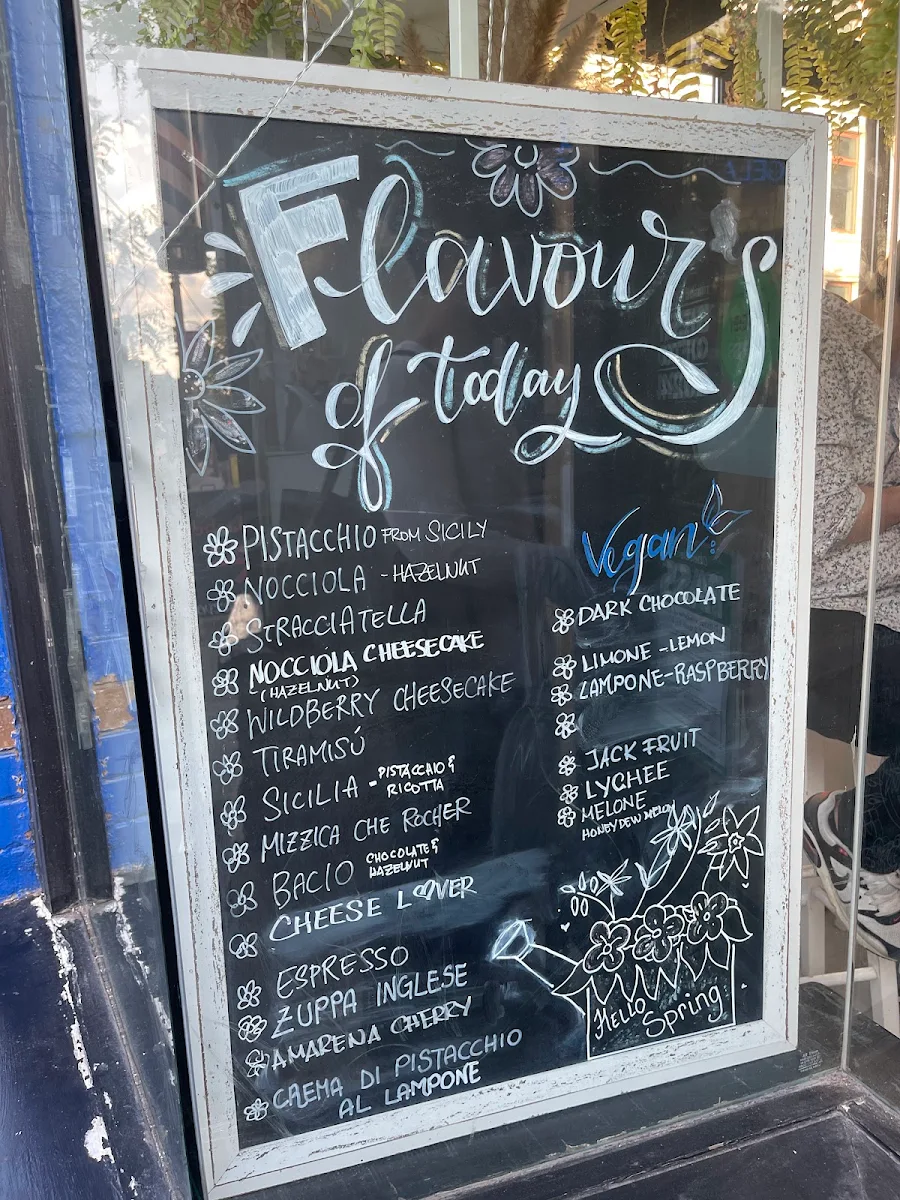 Flavours
of today
PISTACCHIO FROM SICILY
NOCCIOLA - HAZELNUT
STRACCIATELLA
NOCCIOLA CHEESECAKE
(HAZELNUT)
WILDBERRY CHEESECAKE
TIRAMISÚ
SICILIA - PISTACCHIO &
RICOTTA
MIZZICA CHE ROCHER
BACIO CHOCOLATE &
HAZELNUT
CHEESE LOVER
ESPRESSO
ZUPPA INGLESE
AMARENA CHERRY
CREMA DI PISTACCHIO
AL LAMPONE
Vegan
DARK CHOCOLATE
LIMONE - LEMON
LAMPONE - RASPBERRY
JACK FRUIT
LYCHEE
MELONE
HONEYDEW MELON
HELLO
Spring